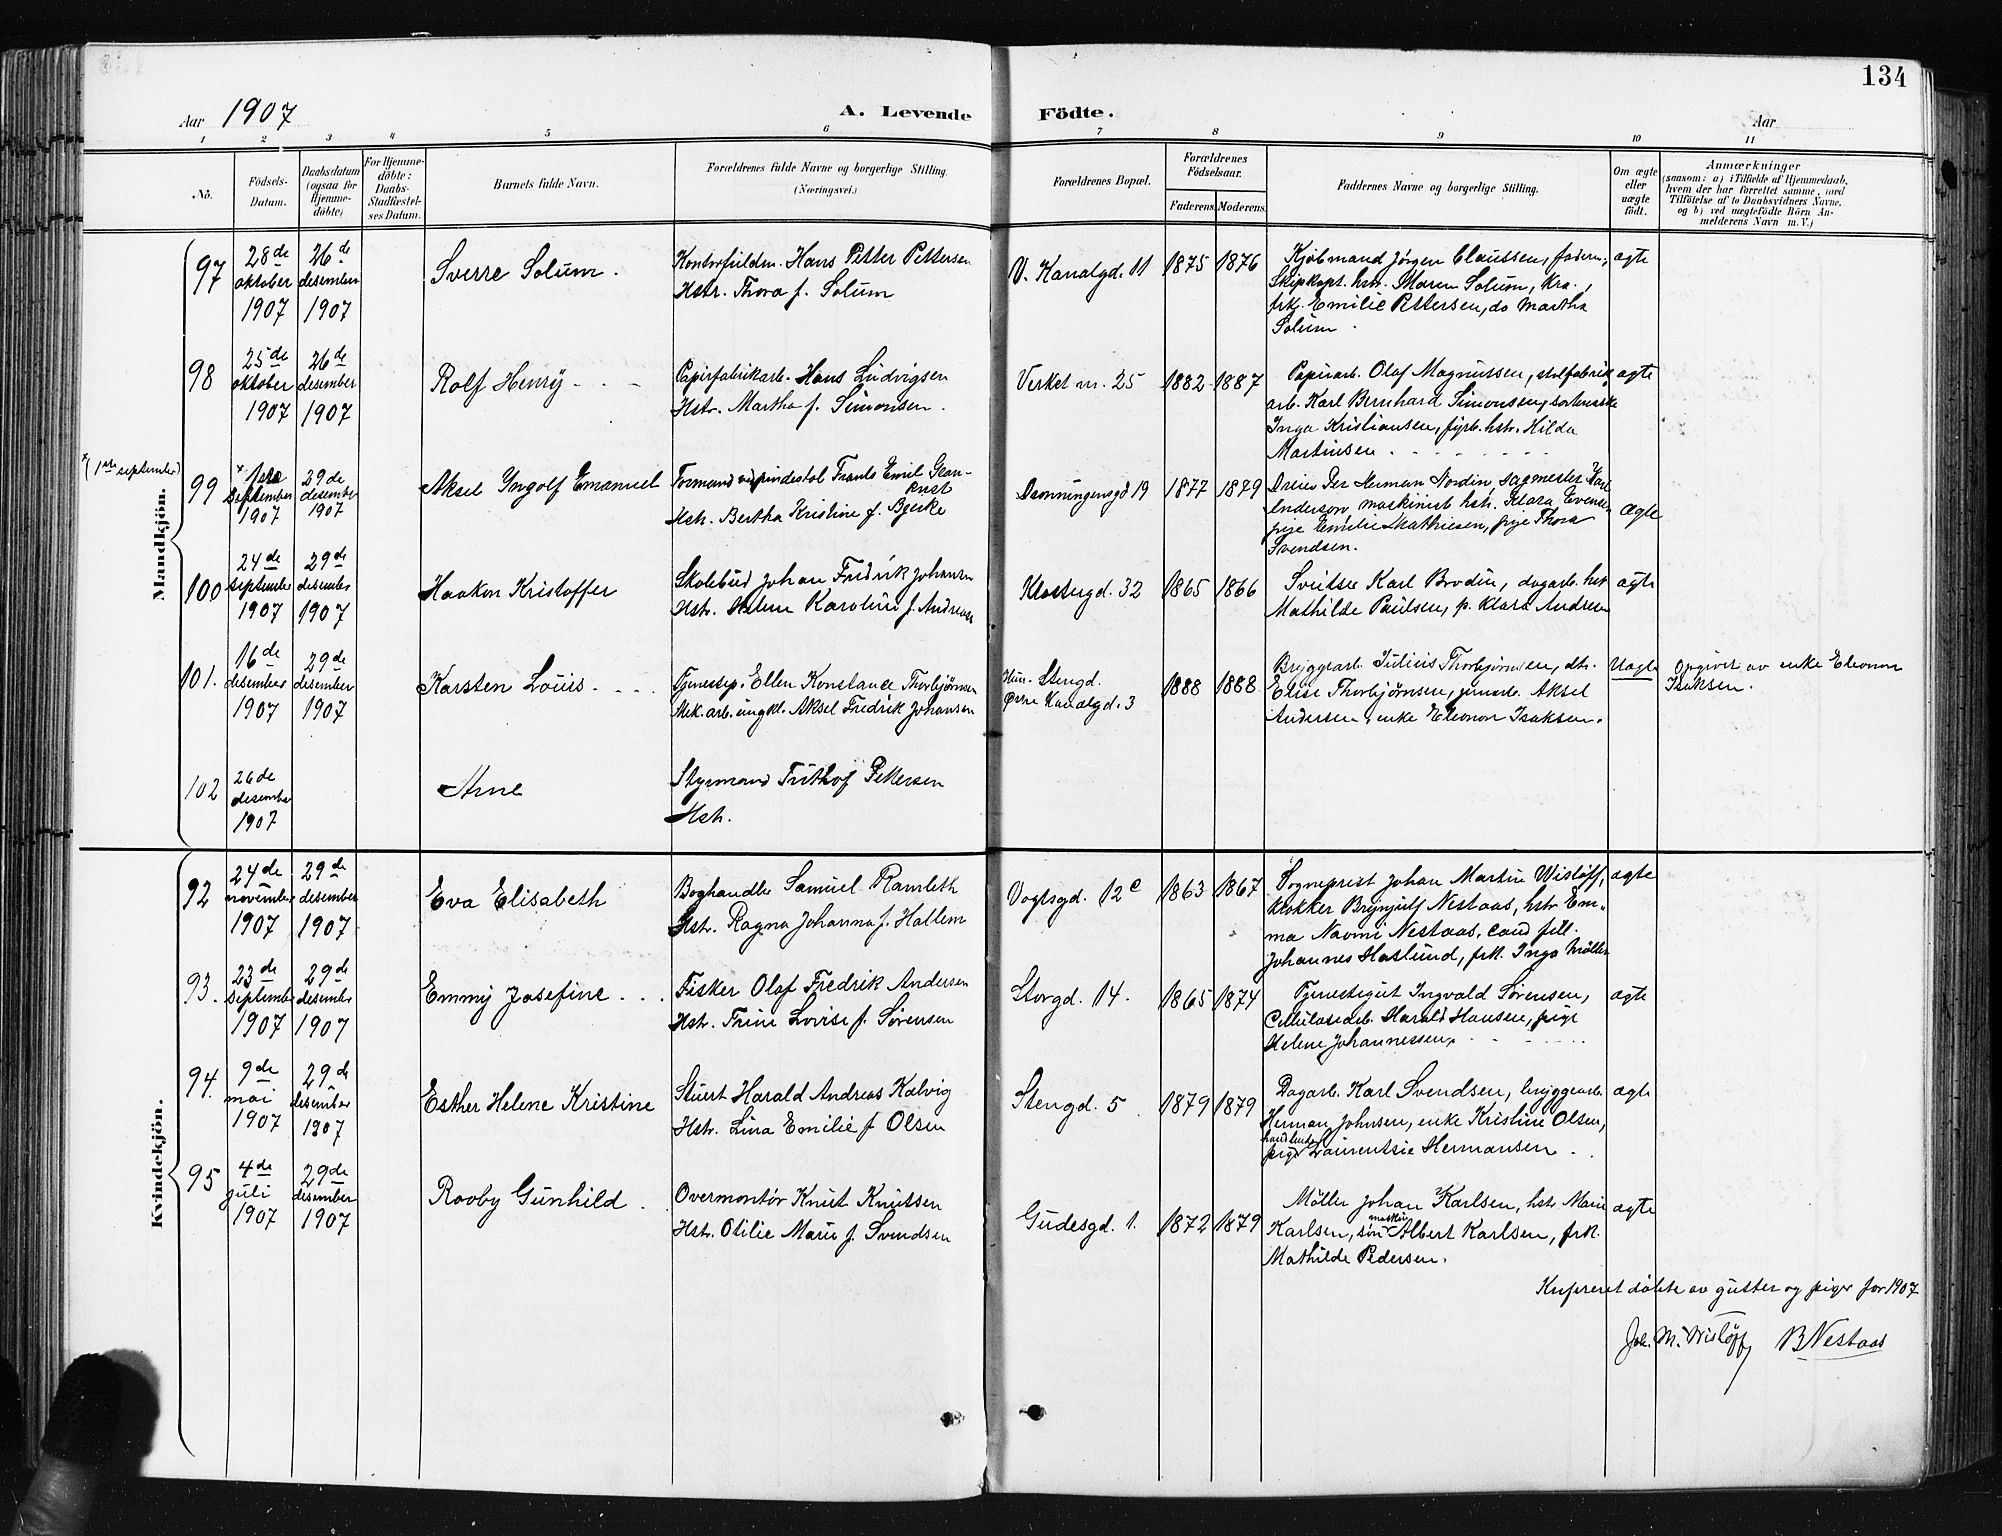 134
Aar 1907
A. Levende Födte.
Aar
1 2 3 4 5 6 7 8 9 10 11
No.
Födsels-Datum.
Daabsdatum (ogsaa for Hjemme-döbte)
For Hjemme-döbte: Daabs-Stadfæstel-ses Datum.
Barnets fulde Navn.
Forældrenes fulde Navne og borgerlige Stilling. (Næringsvei.)
Forældrenes Bopæl.
Forældrenes Födselsaar.
Faderens. Moderens.
Faddernes Navne og borgerlige Stilling.
Om ægte eller uægte födt.
Anmærkninger
(saasom: a) i Tilfælde af Hjemmedaab, hvem der har forrettet samme, med Tilföielse af to Daabsvidners Navne, og b) ved uægtefödte Börn An-melderens Navn m. V.)
Mandkjön.
97 28de oktober 1907 26de desember 1907 Sverre Solum.
Kontorfuldm. Hans Petter Pettersen
Hstr. Thora f. Solum
V. Kanalgd. 11 1875 1876
Kjøbmand Jørgen Claussen, faderen,
Skipskapt. hstr. Maren Solum, Kra.,
frk. Emilie Pettersen, do Martha
Solum
ægte
98 25de oktober 1907 26de desember 1907 Rolf Henry
Papirfabrikarb. Hans Ludvigsen
Hstr. Martha f. Simonsen.
Verket nr. 25 1882 1887
Papirarb. Olaf Magnussen,
arb. Karl Bernhard Simonsen,
Inga Kristiansen, fyrb. hstr. Hilda
Martinsen
ægte
x (1ste september)
99 x september 1907 29de desember 1907 Aksel Yngolf Emanuel
Formand Frants Emil Gran-
kvist
Hstr. Bertha Kristine f. Bjerke
Dronningensgd 19 1877 1879
Dreier Per Herman Nordin, sagmester Karl
Anderson, maskinist hstr. Klara Evensen
pige Emilie Mathiesen, pige Thora
Svendsen.
ægte
100 24de september 1907 29de desember 1907 Haakon Kristoffer
Skolebud Johan Fredrik Johansen
Hstr. Helene Karoline f. Andreassen
Klostergd. 32 1865 1866
Sveitser Karl Brodin, dagarb. hstr
Mathilde Paulsen, p. Klara Andresen
ægte
101. 16de desember 1907 29de desember 1907 Karsten Louis
Tjenestep. Ellen Konstance Thorbjørnsen
Mek. arb. ungkl. Aksel Fredrik Johansen
Hun - Stengd.
Øvre Kanalgd. 3
1888 1888
Bryggearb. Julius Thorbjørnsen, dtr.
Elise Thorbjørnsen, Aksel
Andersen, enke Eleonor Isaksen.
Uægte
Opgivet av enke Eleonor
Isaksen.
102 26de desember 1907 Arne
Styrmand Frithof Pettersen
Hstr.
Kvindekjön.
92 24de november 1907 29de desember 1907 Eva Elisabeth
Boghandler Samuel Ramleth
Hstr. Ragna Johanna f. Hallem
Vogtsgd. 12c 1863 1867
Sogneprest Johan Martin Wisløff,
klokker Brynjulf Nestaas, hstr Em-
ma Naomi Nestaas, cand fill.
Johannes Haslund, frk. Inga Møller
ægte
93. 23de september 1907 29de desember 1907 Emmy Josefine
Fisker Olaf Fredrik Andersen
Hstr. Trine Lovise f. Sørensen
Storgd. 14. 1865 1874
Tjenestegut Ingvald Sørensen,
Cellulosearb. Harald Hansen, pige
Helene Johannessen,
ægte
94. 9de mai 1907 29de desember 1907 Esther Helene Kristine
Stuert Harald Andreas Kalvig
Hstr. Lina Emilie f Olsen
Stengd. 5 1879 1879
Dagarb. Karl Svendsen, bryggearb.
Herman Johnsen, enke Kristine Olsen,
pige Laurentsie Hermansen
ægte
95 4de juli 1907 29de desember 1907 Rooby Gunhild.
Overmontør Knut Knutsen
Hstr. Otilie Marie f. Svendsen
Gudesgd. 1. 1872 1879
Møller Johan Karlsen, hstr Marie
Karlsen, søn Albert Karlsen, frk.
Mathilde Pedersen.
ægte
Kupreret døbte av gutter og piger for 1907
Joh. M. Wisløff B Nestaas